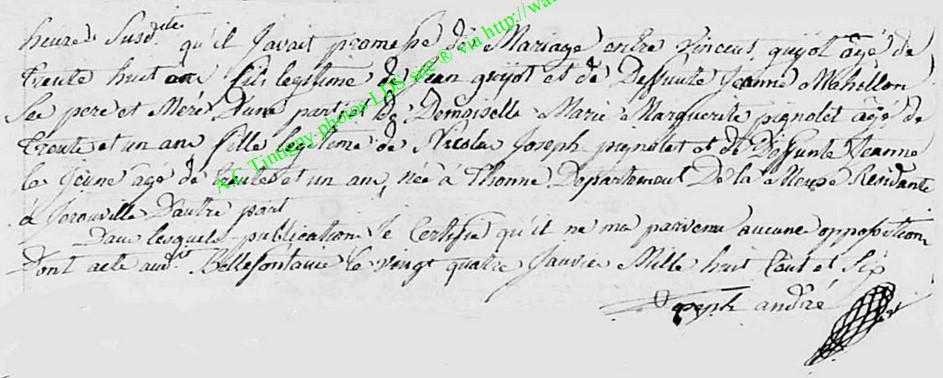 heure Susdite qu'il Javait promesse de Mariage entre vincent guiot agé de
trente huit an fils legitime de Jean guiot et de Deffunte Jeanne Mahillon
Se pere et Mere D'une partie et De Demoiselle Marie Marguerite pignolet agé de
trente et un ans fille legitime de Nicolas Joseph pignolet et de Deffunte Jeanne
le Jeune age de trente et un an, née à Thonne Departement De la Meuse Residante
à Jerouville D'autre part
Dans lesquels publication Je Certifie qu'il ne ma parvenu aucune opposition
Dont acte audit Bellefontaine le vingt quatre Janvier Mille huit Cent et Six
Joseph andré
AC Tintigny photos LDS site ® via http://wa